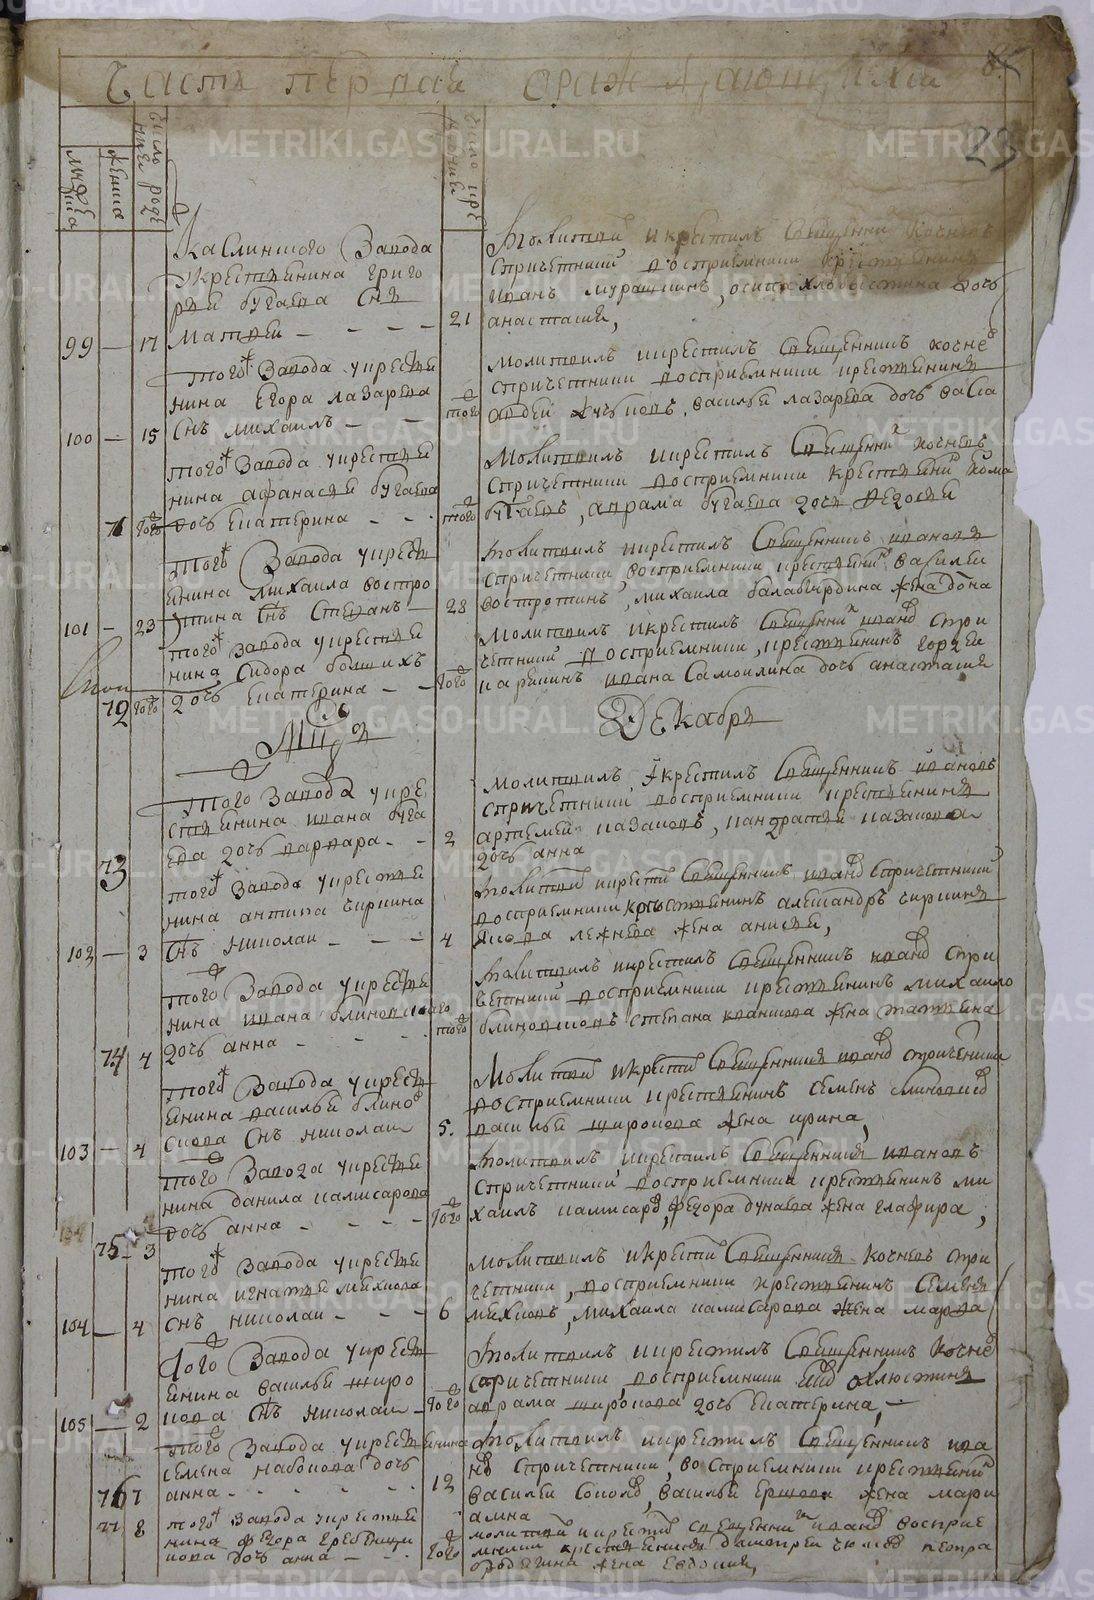 Часть первая о раждающихся
23
число родившихся
мужеска
женска
число рождения
число крещения
Каслинского Завода
крестьянина Григо
рья бугаева Снъ
99 — 17 Матвей — — — — 21
Молитвил и крестил Священник Кочнев
с причетники восприемники крестьянинъ
Иванъ мурашкинъ, осипа хлопыстина дочь
анастасия,
того Завода у крестья
нина Егора лазарева
100 — 15 Снъ михаилъ — — того
молитвилъ и крестилъ Священникъ кочнев
с причетники восприемники крестьянинъ
василья лазарева дочь васса
того Завода у крестья
нина афанасья бугаева
71 того дочь Екатерина — — того
Молитвилъ и крестилъ Священникъ кочневъ
с причетники восприемники крестьянинъ
бугаевъ, аврама бугаева дочь Федосья
того Завода у кресть
янина михаила востро
101 — 23 тина Снъ Степанъ — 23
молитвилъ и крестилъ Священникъ ивановъ
с причетники, восприемники крестьянинъ василей
востротинъ, михаила балабурдина жена домна
того завода у крестья
нина Сидора болшихъ
72 того дочь Екатерина — — того
Молитвилъ и крестилъ Священникъ иванов с при
четники восприемники, крестьянинъ
ивана Самойлина дочь анастасия
Декабря
того Завода у кре
стьянина ивана буга
73 ева дочь варвара — — 2
молитвилъ и крестилъ Священникъ ивановъ
с причетники восприемники крестьянинъ
артемей казаковъ, панкратья казакова
дочь анна
того Завода у крестья
нина антипа чиркина
102 — 3 Снъ николаи — — — 4
молитвил и крестил Священникъ иванов с причетники
восприемники крестьянинъ александръ чиркинъ
лежнева жена анисья,
того Завода у крестья
нина ивана блиновскаго
74 4 дочь анна — — — — того
молитвилъ и крестилъ Священникъ иванов с при
четники восприемники крестьянинъ михаило
блиновсковъ степана жена татьяна
того Завода у кресть
янина василья блинов
103 — 4 скова Снъ николаи 5.
Молитвил и крестил Священникъ иванов с причетники
восприемники крестьянинъ семенъ блиновсков
василья широкова жена ирина,
того Завода у крестья
нина данила
75 — 3 дочь анна — — — — того
молитвилъ и крестилъ Священникъ ивановъ
с причетники восприемники крестьянинъ ми
хаилъ федора дунаева жена глафира,
того Завода у крестья
нина игнатья мехнова
104 — 4 снъ николаи — — — 6
молитвилъ и крестил Священникъ Кочневъ с при
четники, восприемники крестьянинъ Семенъ
михаила жена марфа
того Завода у кресть
янина василья широ
105 — 2 кова Снъ николаи — того
молитвилъ и крестилъ Священникъ Кочнев
с причетники, восприемники
аврама широкова дочь Екатерина, —
того Завода у крестьянина
семена набокова дочь
76 7 анна — — — — — 12
молитвилъ и крестилъ Священникъ ива
нов с причетники, восприемники крестьянинъ
василей Соколов, василья Ершова жена мари
амна
77 8 того Завода у крестья
нина федора гребенщи
кова дочь анна — — — того
молитвил и крестил священникъ иванов восприе
мники крестьянинъ петра
жена Евдокия,